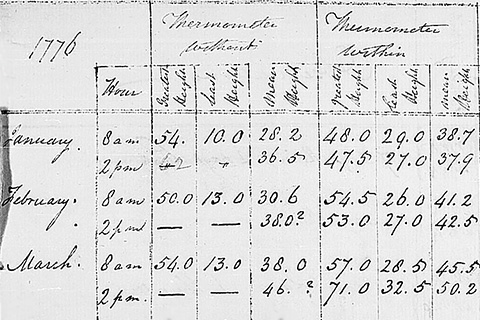 1776
Thermometer without Thermometer within
Hour Greatest Height Least Height Mean Height Greatest Height Least Height mean Height
January. 8 am 54. 10.0 28.2 48.0 29.0 38.7
2 pm " 36.5 47.5 27.0 37.9
February. 8 am 50.0 13.0 30.6 54.5 26.0 41.2
2 pm — — 38.0? 53.0 27.0 42.5
March. 8 am 54.0 13.0 38.0 57.0 28.5 45.5
2 pm. — — 46. ? 71.0 32.5 50.2